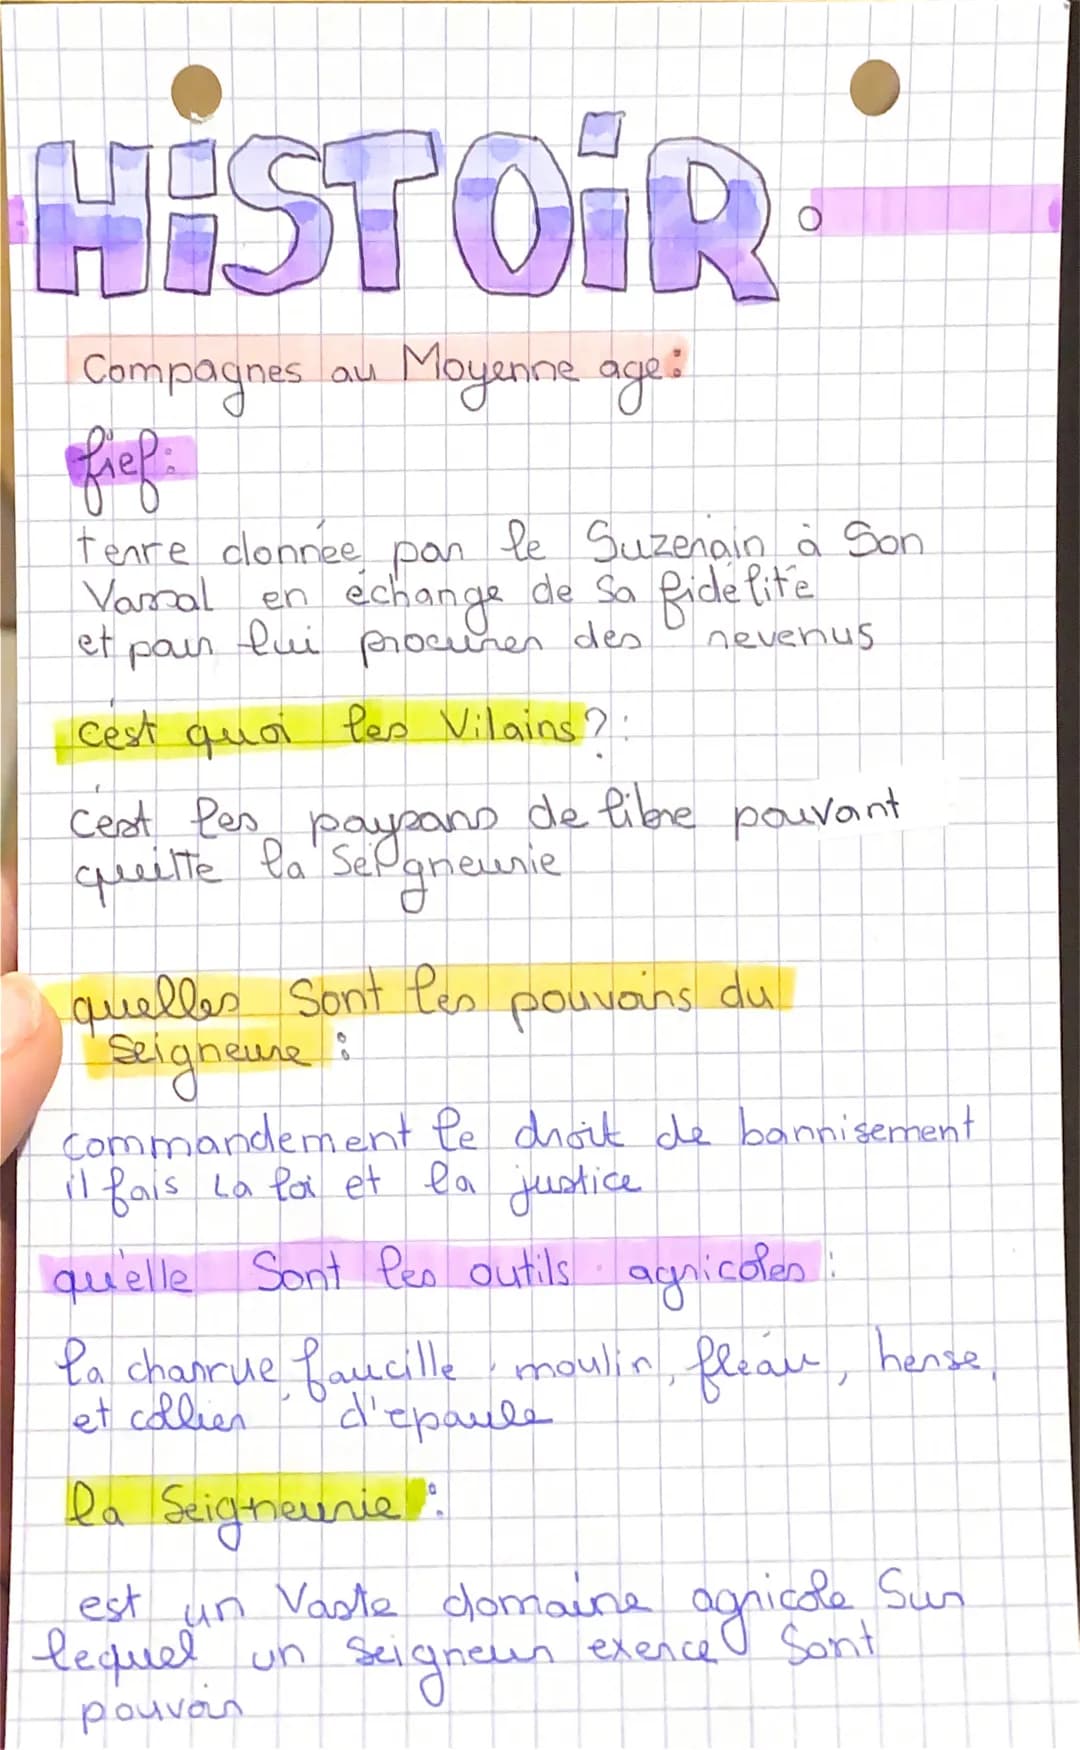 HiSTOiR
Compagnes au Moyenne age:
fief:
terre donnée par le Suzerain à Son
Vassal en échange de Sa fidélité
et pour lui procurer des revenus
c'est quoi les Vilains?:
c'est les paysans de libre pouvant
quitte la Seigneurie
quelles Sont les pouvoirs du
Seigneure :
commandement le droit de bannisement
il fais La loi et la justice
qu'elle Sont les outils agricoles :
la charrue, faucille, moulin, fléau, herse,
et collier d'epaule
la Seigneurie :
est un Vaste domaine agricole Sur
lequel un Seigneur exerce Sont
pouvoir